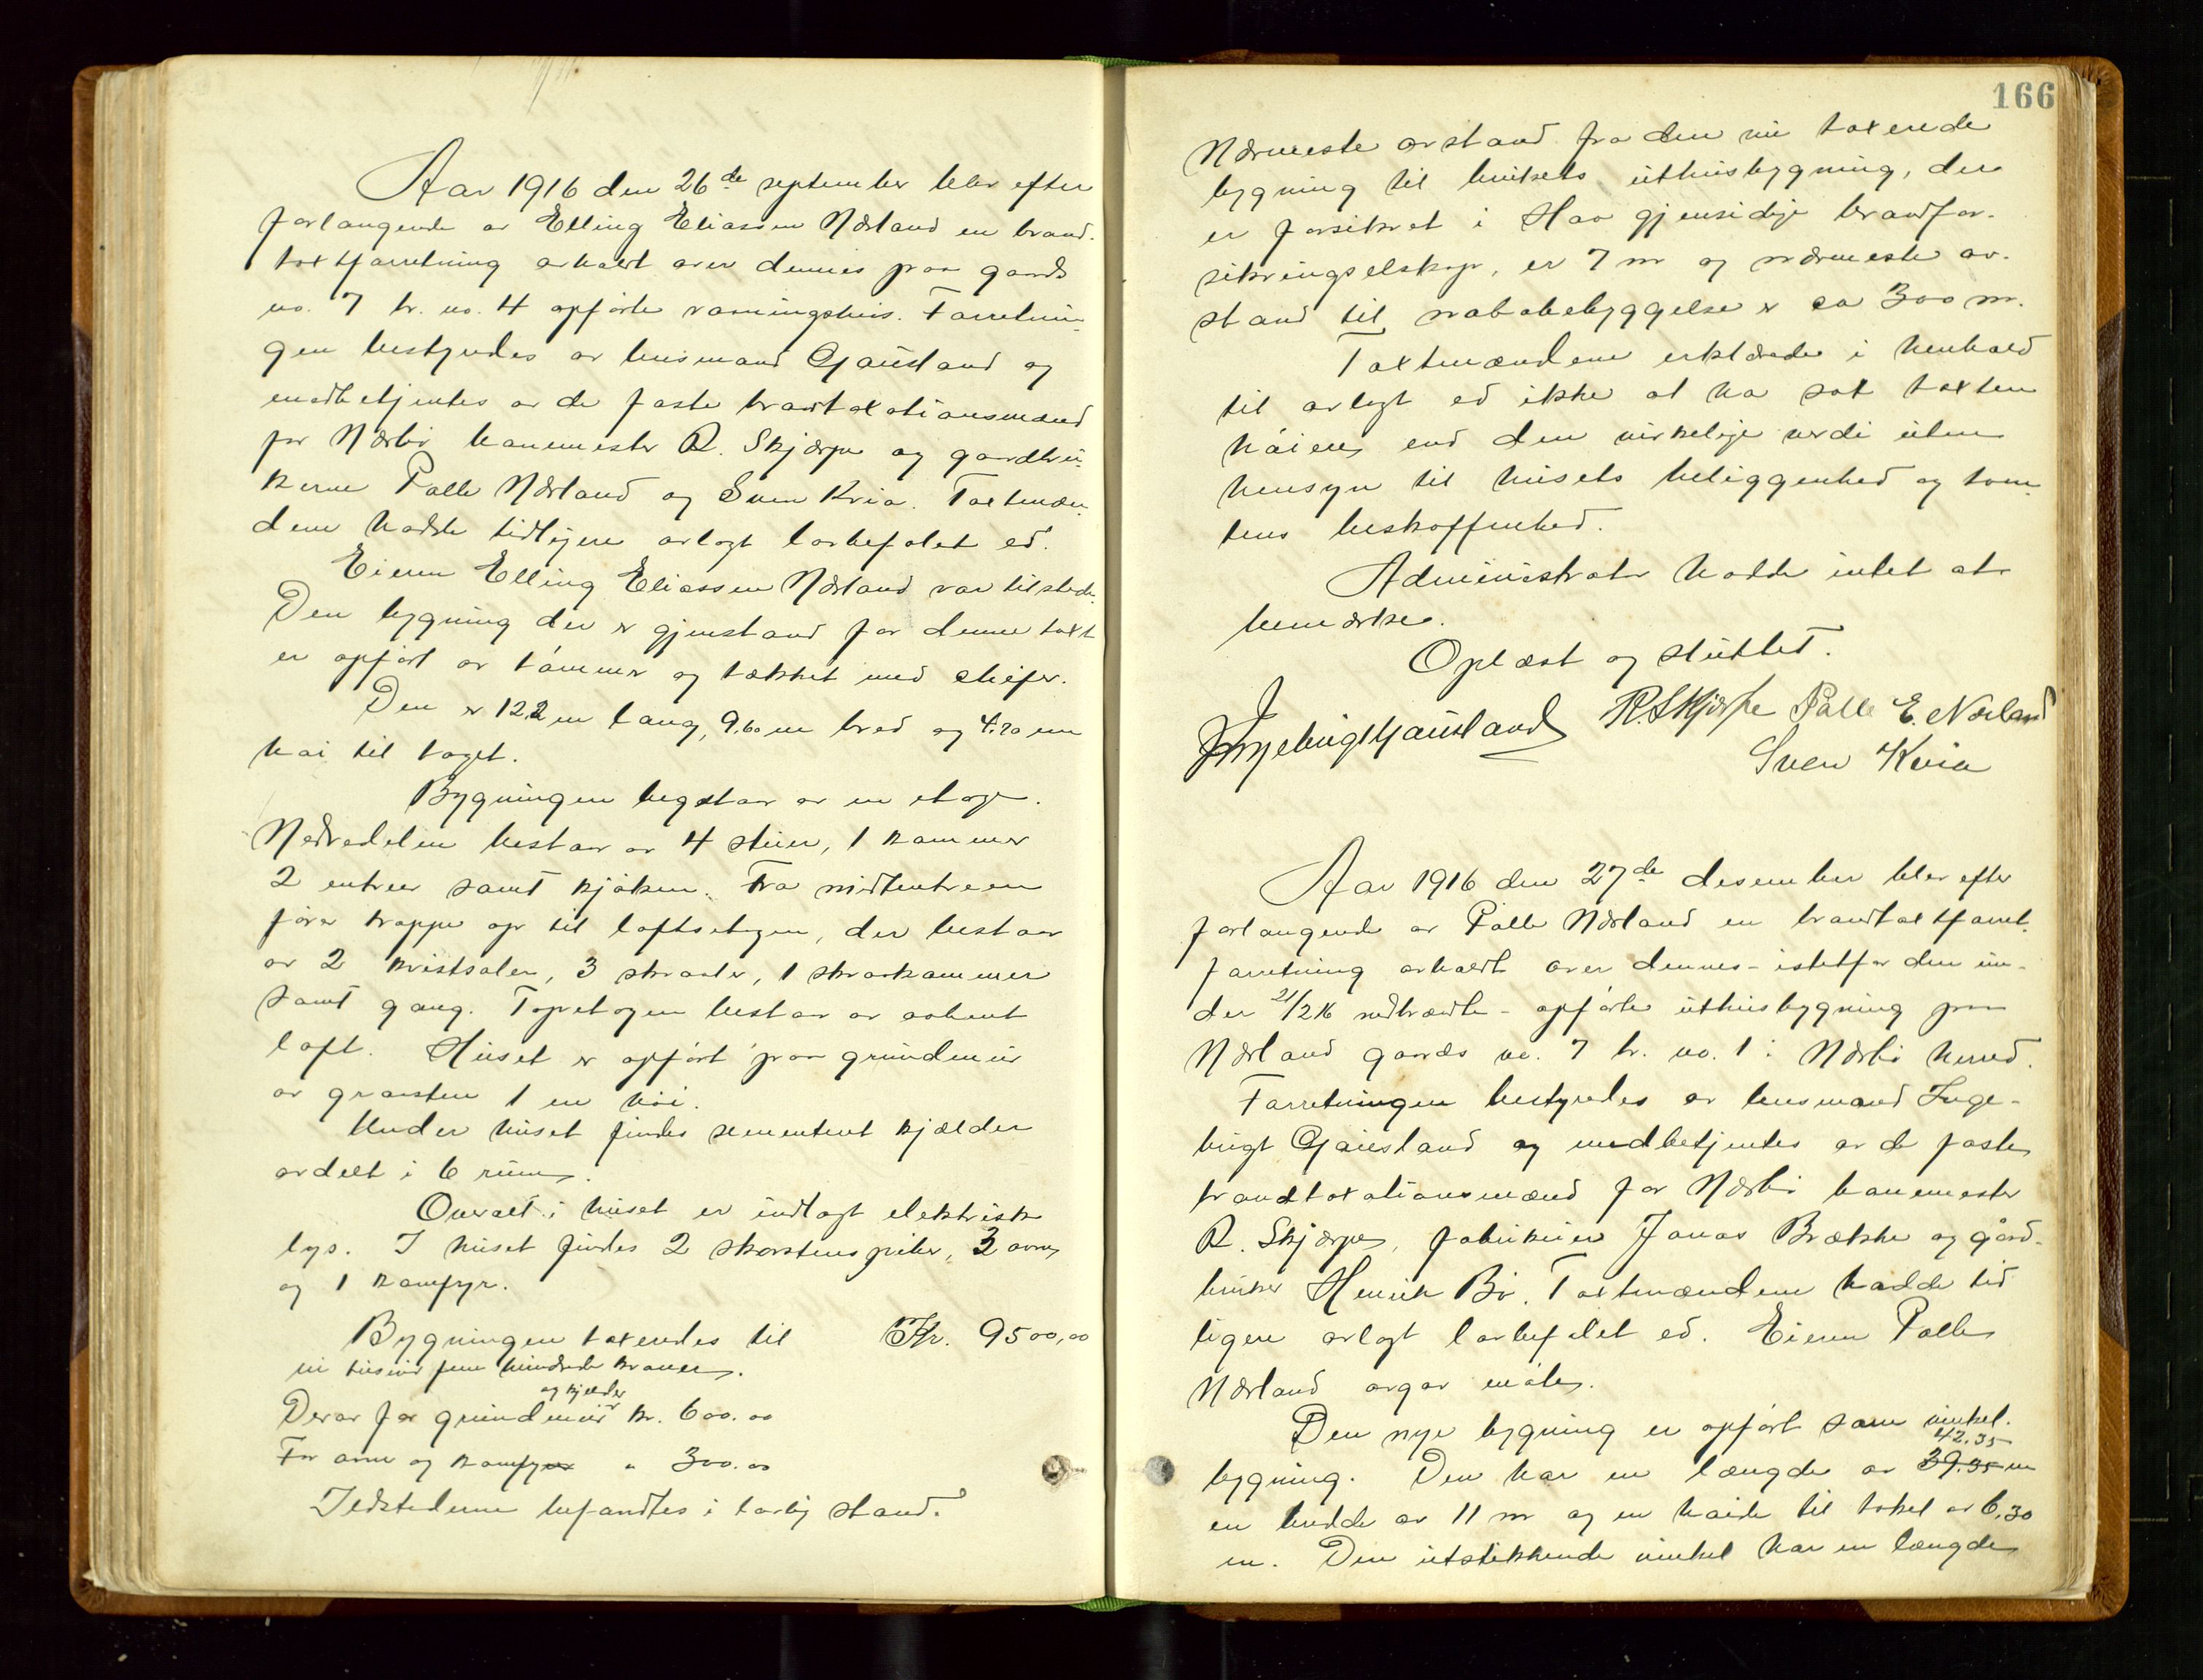 Aar 1916 den 26de september blev efter
forlangende av Elling Eliassen Nærland en brand-
taxtforretning avholdt over dennes paa gaards
no. 7 br. no. 4 opførte vaaningshus. Forretnin-
gen bestyredes av lensmand Gausland og
medbetjentes av de faste brandtaxationsmænd
for Nærbø kanemester R. Skjærpe og gaardbru-
kerne Palle Nærland og Sven Kvia. Taxtmæn-
dene hadde tidligere avlagt lovbefalet ed.
Eieren Elling Eliassen Nærland var tilstede.
Den bygning der er gjenstand for denne taxt
er opført av tømmer og tækket med skifer.
Den er 122 m lang, 9.60 m bred og 4.20 m
høi til taget.
Bygningen bestaar av en etage.
Nedredelen bestaar av 4 stuer, 1 kammer
2 entreer samt kjøken. Fra midtentreen
fører trappe op til loftsetagen, der bestaar
av 2 kvistsaler, 3 skraaler, 1 skraakammer
samt gang. Topetagen bestaar av aabent
loft. Huset er opført paa grundmur
av graasten 1 m høi.
Under huset findes sementert kjælder
avdelt i 6 rum.
Overalt i huset er indlagt elektrisk
lys. I huset findes 2 skorstenspiber, 3 ovne
og 1 komfyr.
Bygningen taxeredes til Kr. 9500,00
ni tusind fem hundrede kroner.
og kjelder
Derav for grundmur kr. 600.00
For ovne og komfyr " 300.00
Ildstederne befandtes i lovlig stand.
166
Nærmeste avstand fra den nu taxerede
bygning til brukets uthusbygning, der
er forsikret i Haa gjensidige brandfor-
sikringselskap, er 7 m og nærmeste av-
stand til nabobebyggelse er ca 300 m.
Taxtmændene erklærede i henhold
til avlagt ed ikke at ha sat taxten
høiere end den virkelige verdi uten
hensyn til husets beliggenhed og tom-
tens beskaffenhed.
Administrator hadde intet at
bemærke.
Oplæst og sluttet.
Ingebrigt Gausland R. Skjærpe Palle E. Nærland
Sven Kvia
Aar 1916 den 27de desember blev efter
forlangende av Palle Nærland en brandtaxtforret-
forretning avholdt over dennes - istetfor den un-
der 21/2 16 nedbrændte - opførte uthusbygning paa
Nærland gaards no. 7 br. no. 1 i Nærbø herred.
Forretningen bestyredes av lensmand Inge-
brigt Gausland og medbetjentes av de faste
brandtaxationsmænd for Nærbø kanemester
R. Skjærpe, fabrikeier Jonas Brække og gård-
bruker Henrik Bø. Taxtmændene hadde tid
ligere avlagt lovbefalet ed. Eieren Palle
Nærland avgav møte.
Den nye bygning er opført som vinkel-
42.35
bygning. Den har en længde av 39.35 m
en bredde av 11 m og en høide til taket av 6,30
m. Den utstikkende vinkel har en længde